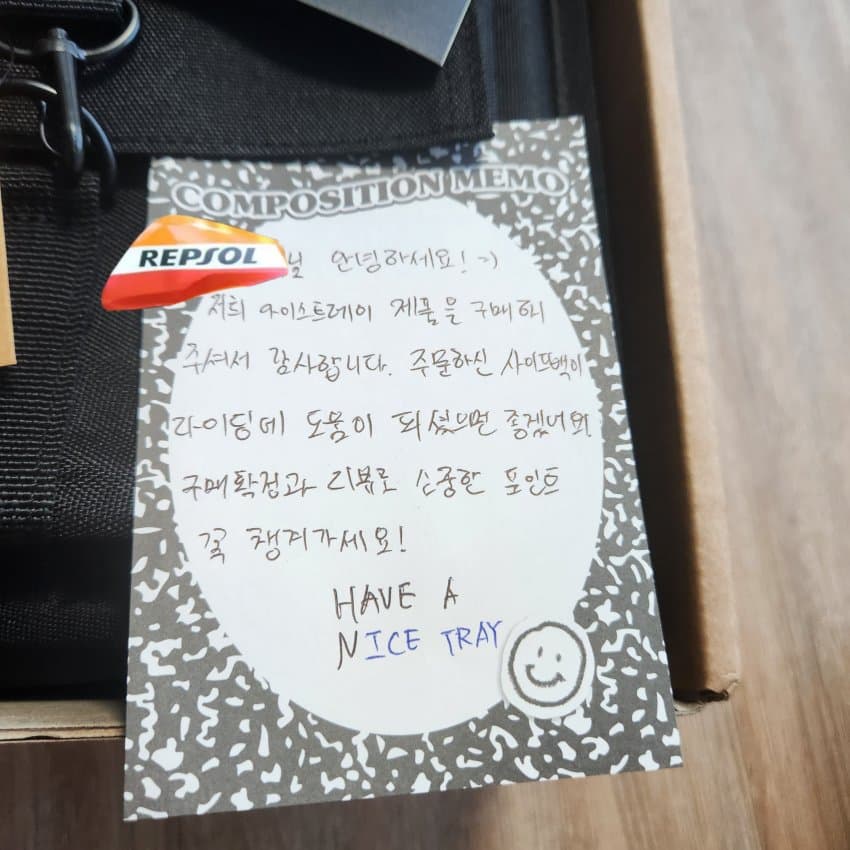 COMPOSITION MEMO
REPSOL
님 안녕하세요! :)
저희 아이스트레이 제품을 구매해
주셔서 감사합니다. 주문하신 사이드백이
라이딩에 도움이 되셨으면 좋겠네요
구매확정과 리뷰로 소중한 포인트
꼭 챙겨가세요!
HAVE A
NICE TRAY